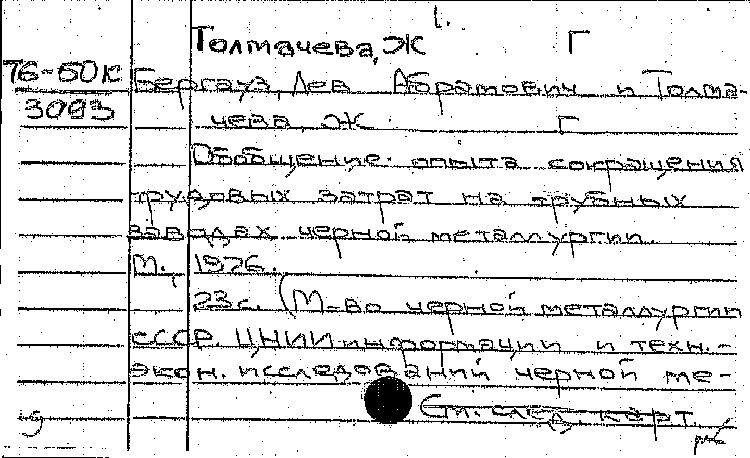 1.
Толмачева, Ж Г
76-50к Бергауз, Лев Абрамович и Толма-
3093 чева, Ж Г
Обобщение опыта сокращения
трудовых затрат на трубных
заводах черной металлургии.
М., 1976.
23 с. (М-во черной металлургии
СССР. ЦНИИ информации и техн.-
экон. исследований черной ме-
См. след. карт.